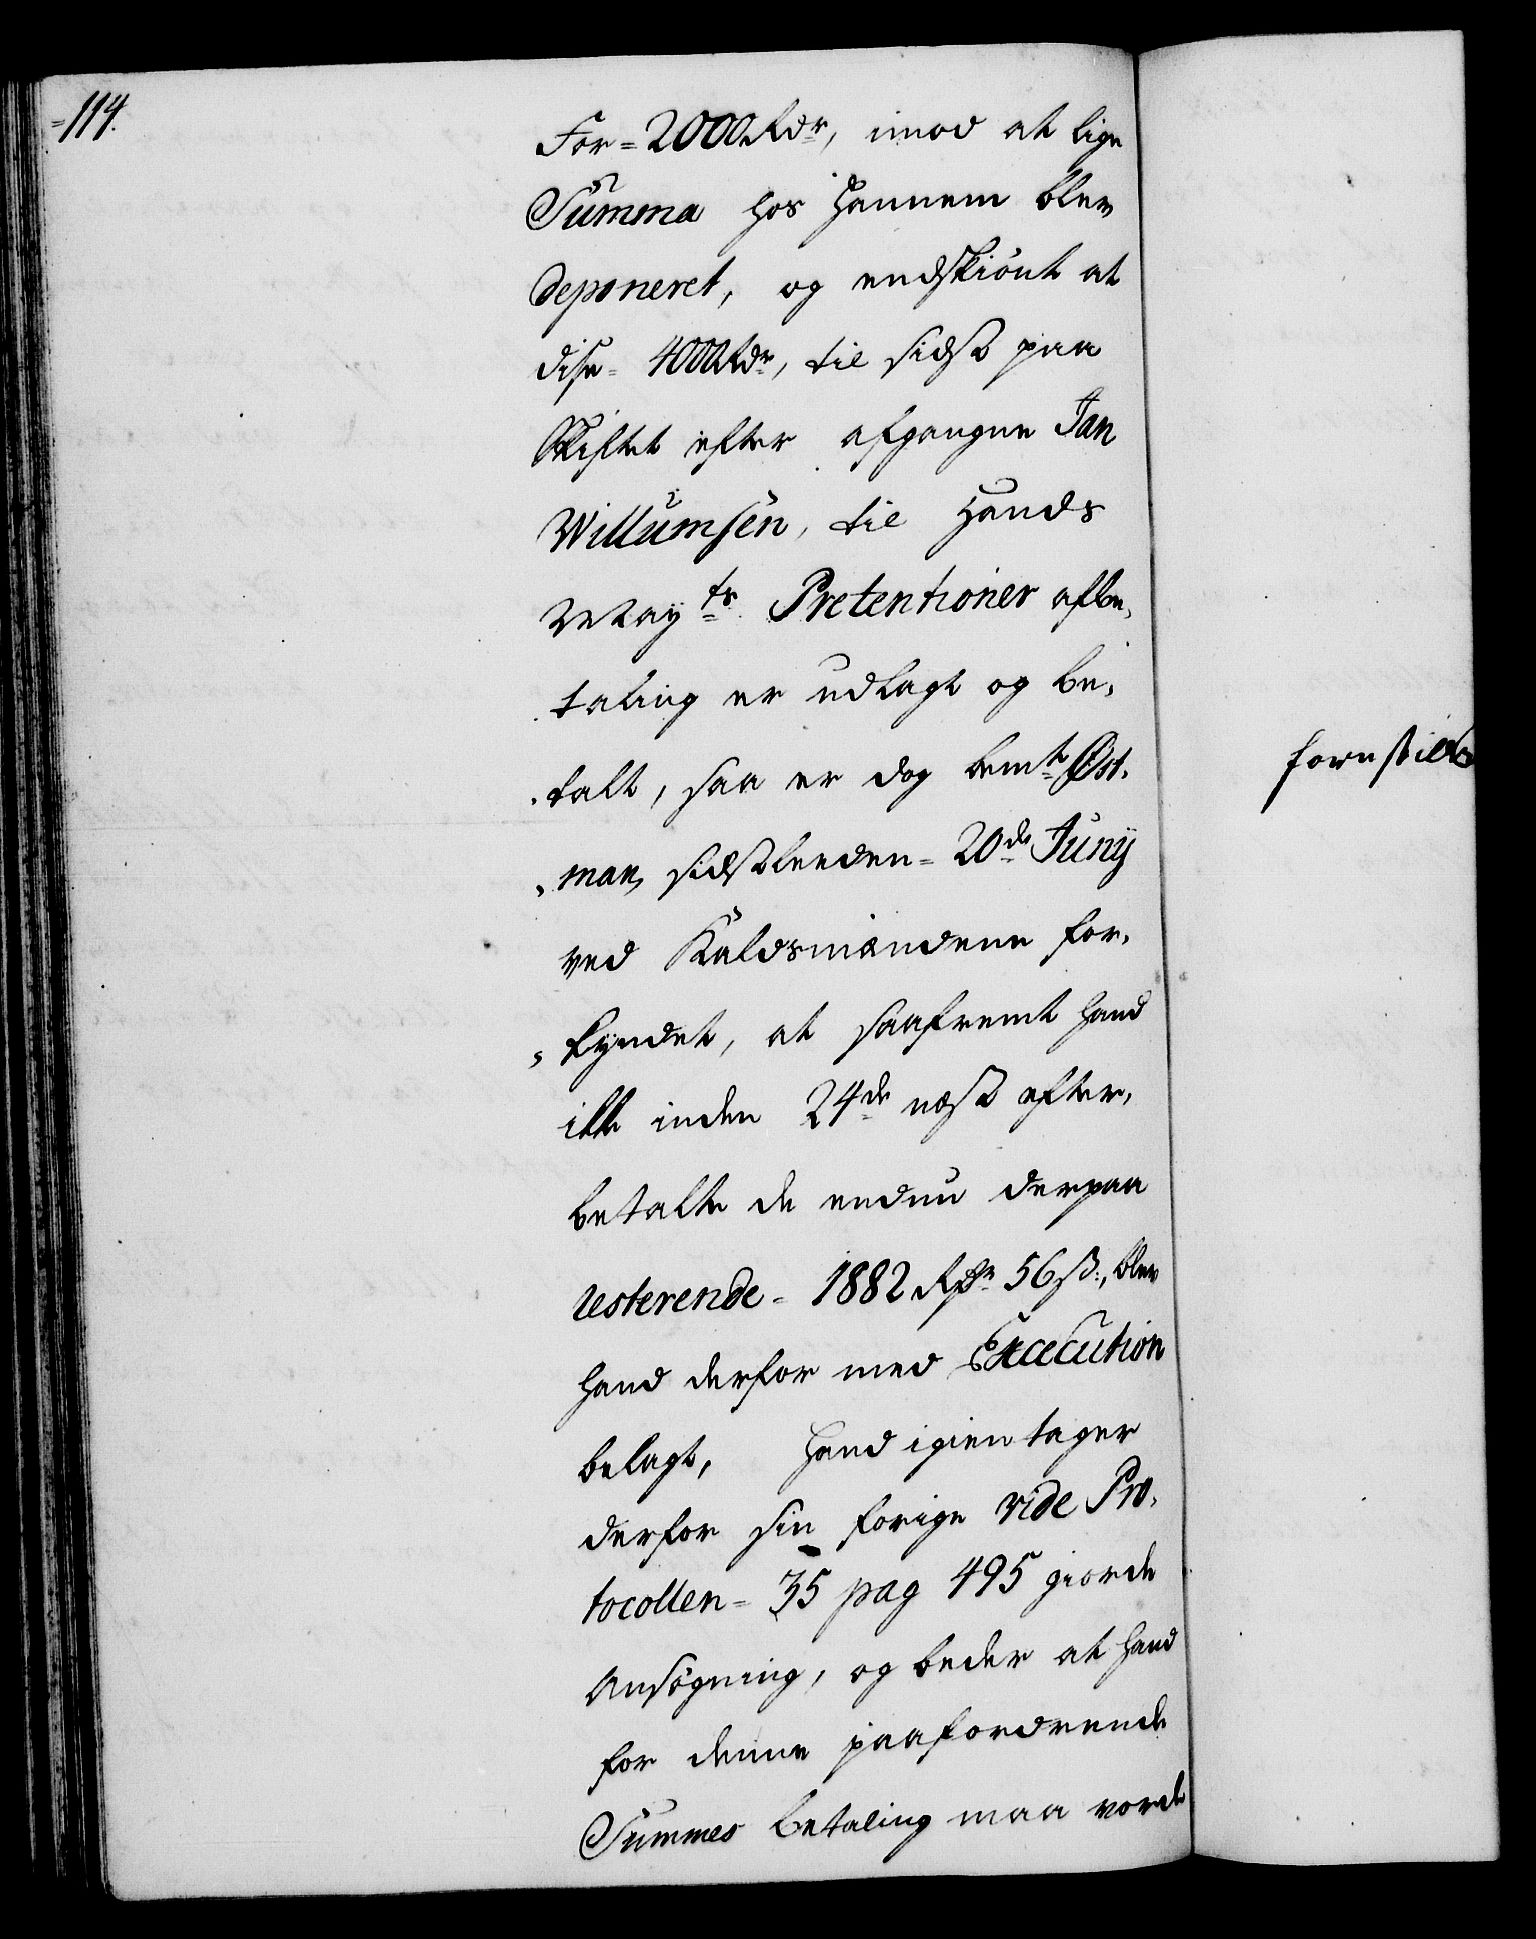 =114.
For = 2000 Rdr, imod at lige
Summa hos Hannem blev
deponeret, og endskiönt at
dise = 4000 Rdr, til sidst paa
Skiftet efter afgangne Jan
Willumsen, til Hands
Mayts Pretentioner afbe,
taling er udlagt og be,
talt, saa er dog bemte Øst,
man, sidstleeden = 20de Juny
ved Kaldsmændene for,
kyndet, at saafremt hand
ikke inden 24de næst efter,
betalte de endnu derpaa
resterende = 1882 Rdr 56 ß:, blev
hand derfor med Execution
belagt, Hand igientager
derfor sin forige vide Pro,
tocollen = 35 pag 495 giorde
Ansögning, og beder at hand
for denne paafordrende
Summes betaling maa vorde